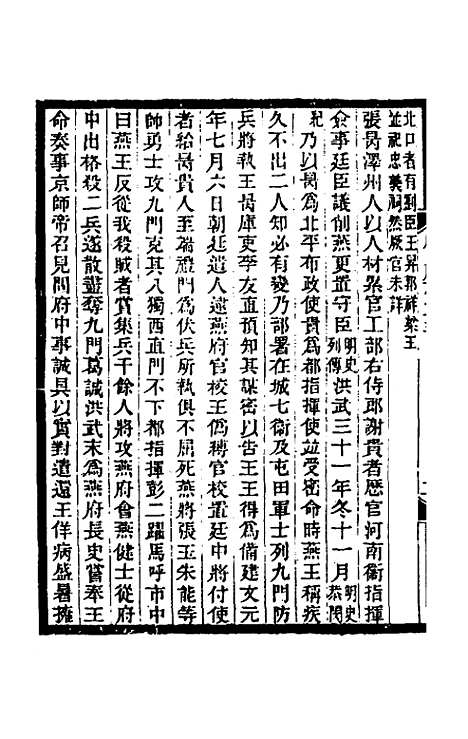 北口者有劉臣王昇郭祥梁王
並祀忠義祠然厥官未詳
張昺澤州人以人材累官工部右侍郎謝貴者歷官河南衛指揮
僉事廷臣議創燕更置守臣明史列傳洪武三十一年冬十一月明史恭閔
紀乃以昺為北平布政使貴為都指揮使並受密命時燕王稱疾
久不出二人知必有變乃部署在城七衛及屯田軍士列九門防
兵將執王昺庫吏李友直預知其謀密以告王王得為備建文元
年七月六日朝廷遣人逮燕府官校王偽縛官校置廷中將付使
者紿昺貴人至端禮門為伏兵所執俱不屈死燕將張玉朱能等
師勇士攻九門克其八獨西直門不下都指揮彭二躍馬呼市中
曰燕王反從我殺賊者賞集兵千餘人將攻燕府會燕健士從府
中出格殺二兵遂散盡奪九門葛誠洪武末為燕府長史嘗奉王
命奏事京師帝召見問府中事誠具以實對遣還王佯病盛暑擁